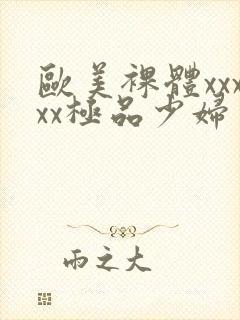 歐美裸體xxx
xx極品少婦
雨之大